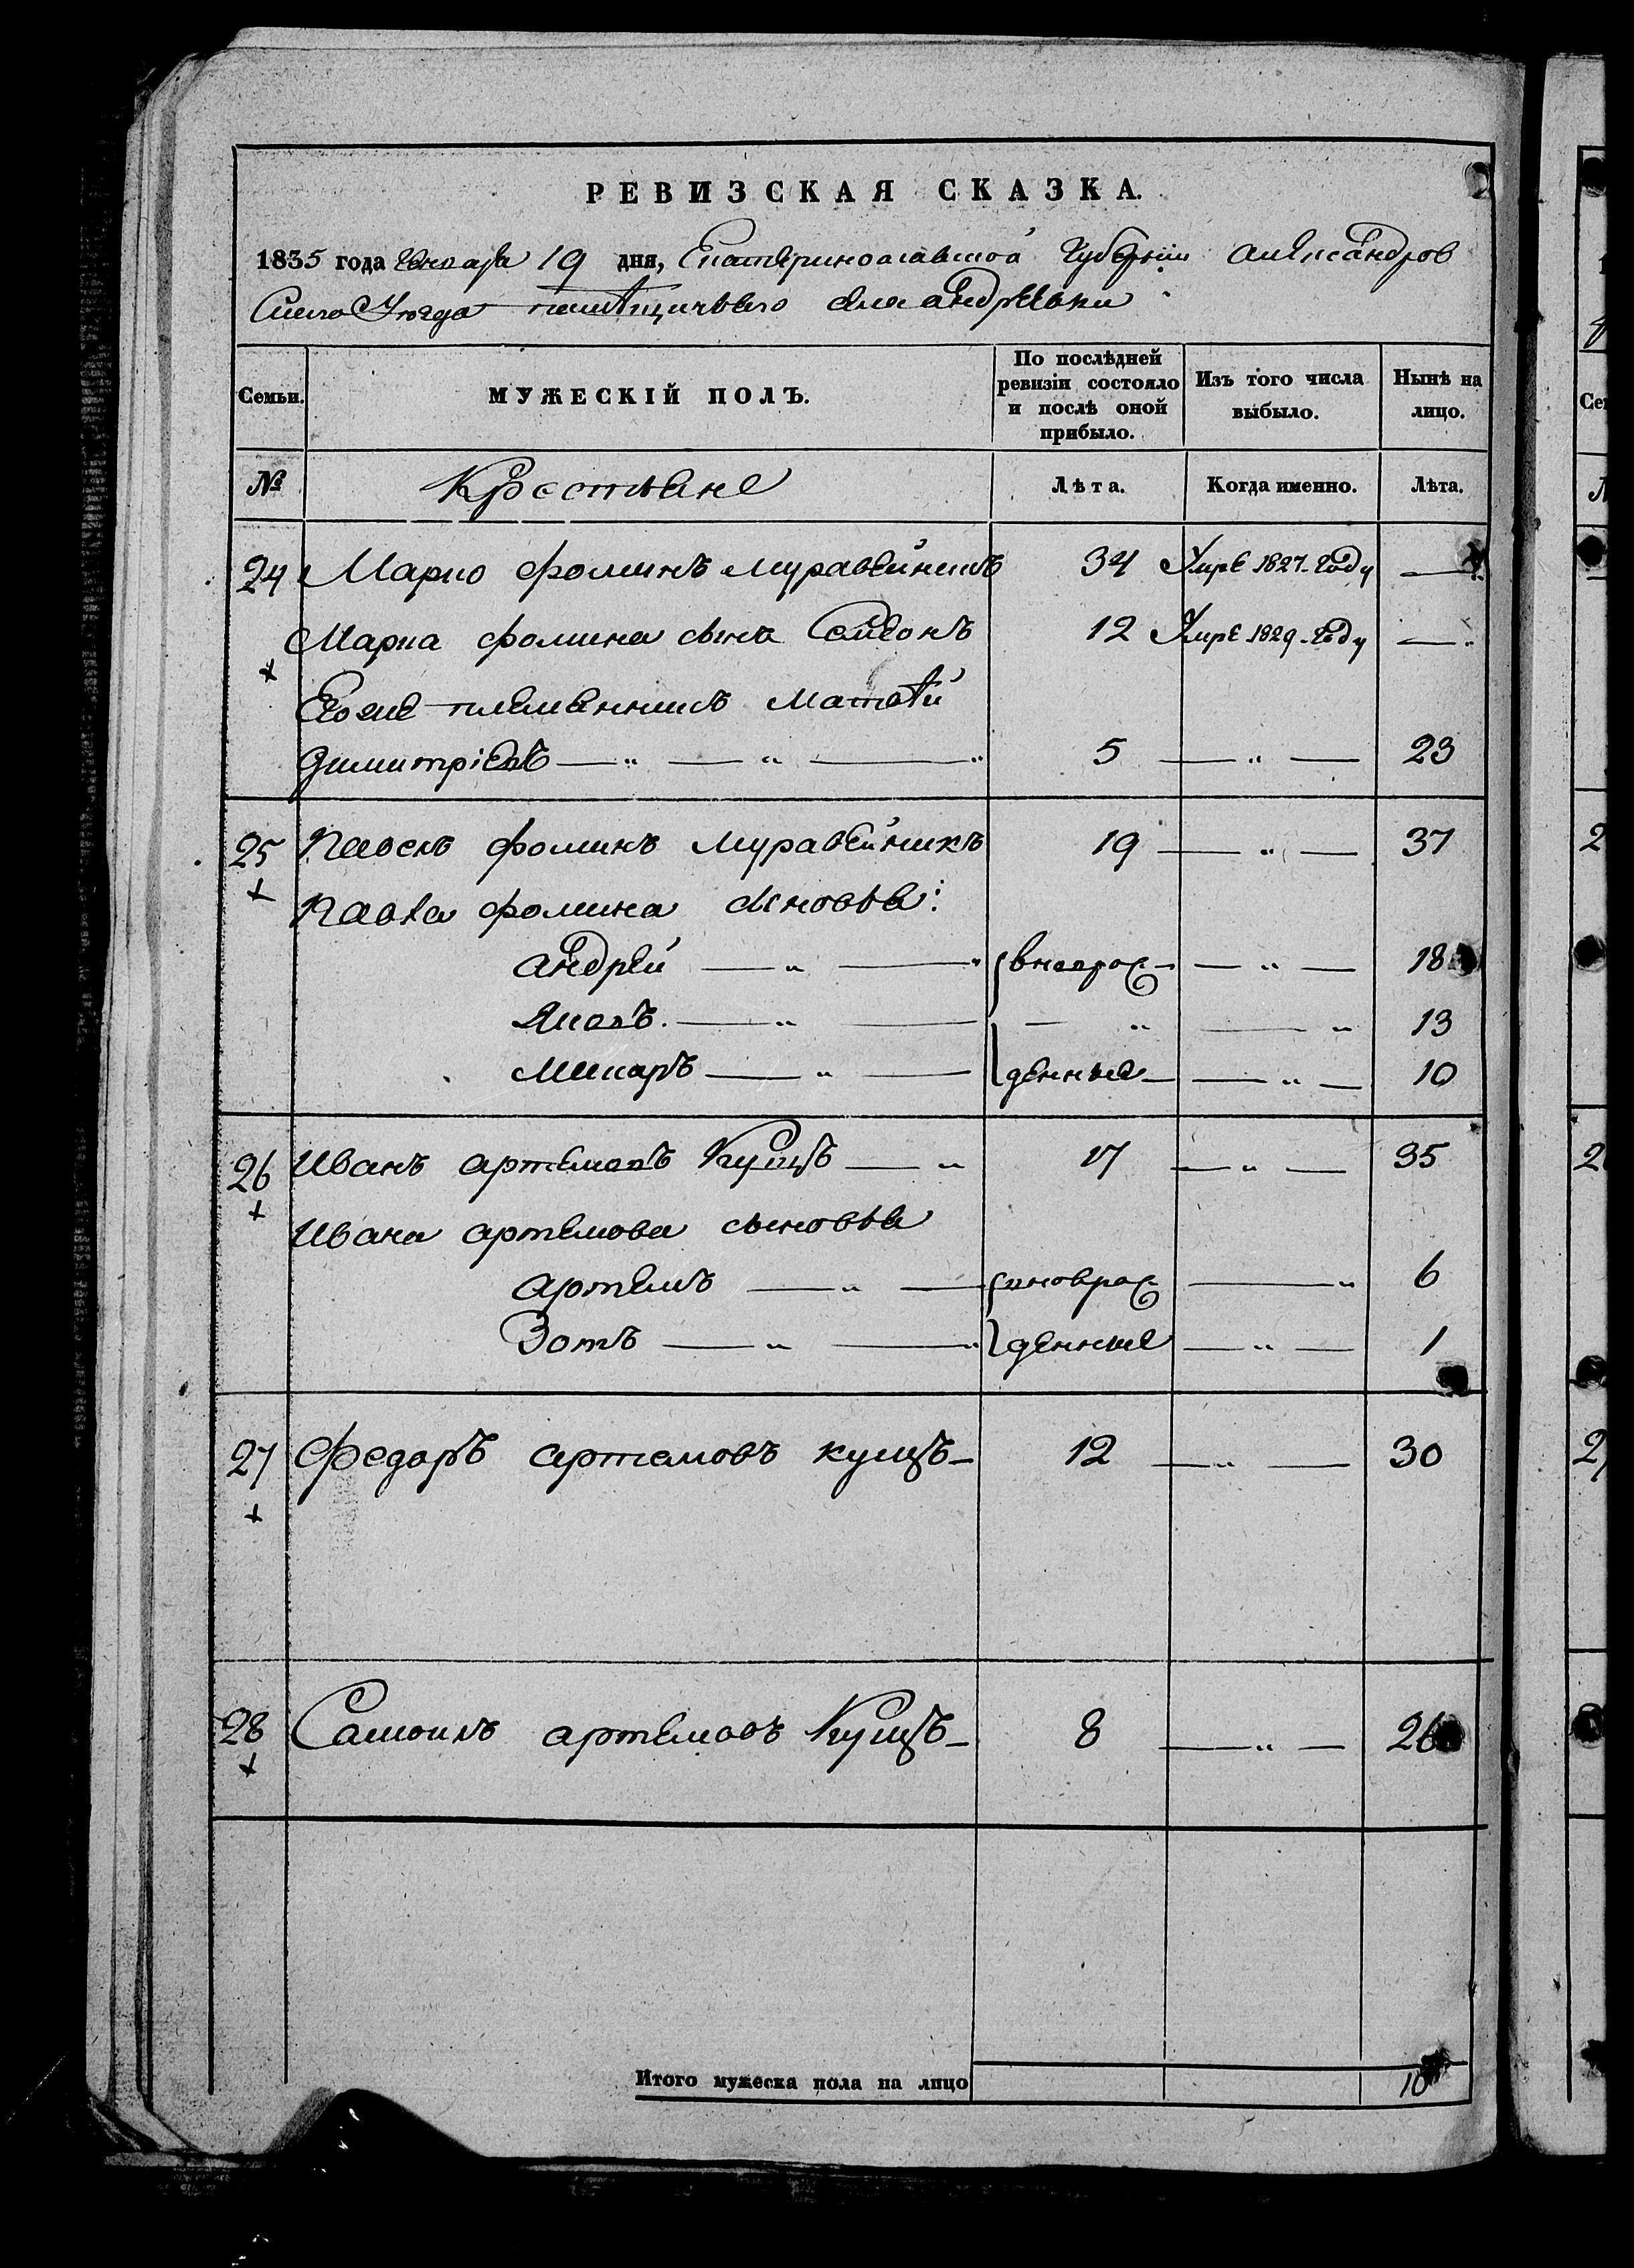 РЕВИЗСКАЯ СКАЗКА.
1835 года Генваря 19 дня, Екатеринославской Губернии Александров
скаго Уезда помѣщичьяго села Андреевки
Семьи. МУЖЕСКІЙ ПОЛЪ. По послѣдней ревизіи состояло и послѣ оной прибыло. Изъ того числа выбыло. Нынѣ на лицо.
№ Крестьяне Лѣта. Когда именно. Лѣта.
24 Марко Фоминъ Муравейникъ 34 Умре 1827 Году —
Марка Фомина сынъ Самсонъ 12 Умре 1829 Году —
Егоже племянникъ Матвѣй
Димитріевъ — " — " — " 5 — " — 23
25 Павелъ Фоминъ Муравейникъ 19 — " — 37
Павла Фомина сыновья:
Андрей — " — " вновьрож — " — 18
Яковъ. — " — — " — " 13
Макаръ — " — денные — " — 10
26 Иванъ Артемовъ Кущъ — " 17 — " — 35
Ивана Артемова сыновья
Артемъ — " — вноврож — " 6
Зотъ — " — " денные — " — 1
27 Федоръ Артемовъ Кущъ — 12 — " — 30
28 Самоилъ Артемовъ Кущъ — 8 — " — 26
Итого мужеска пола на лицо 10